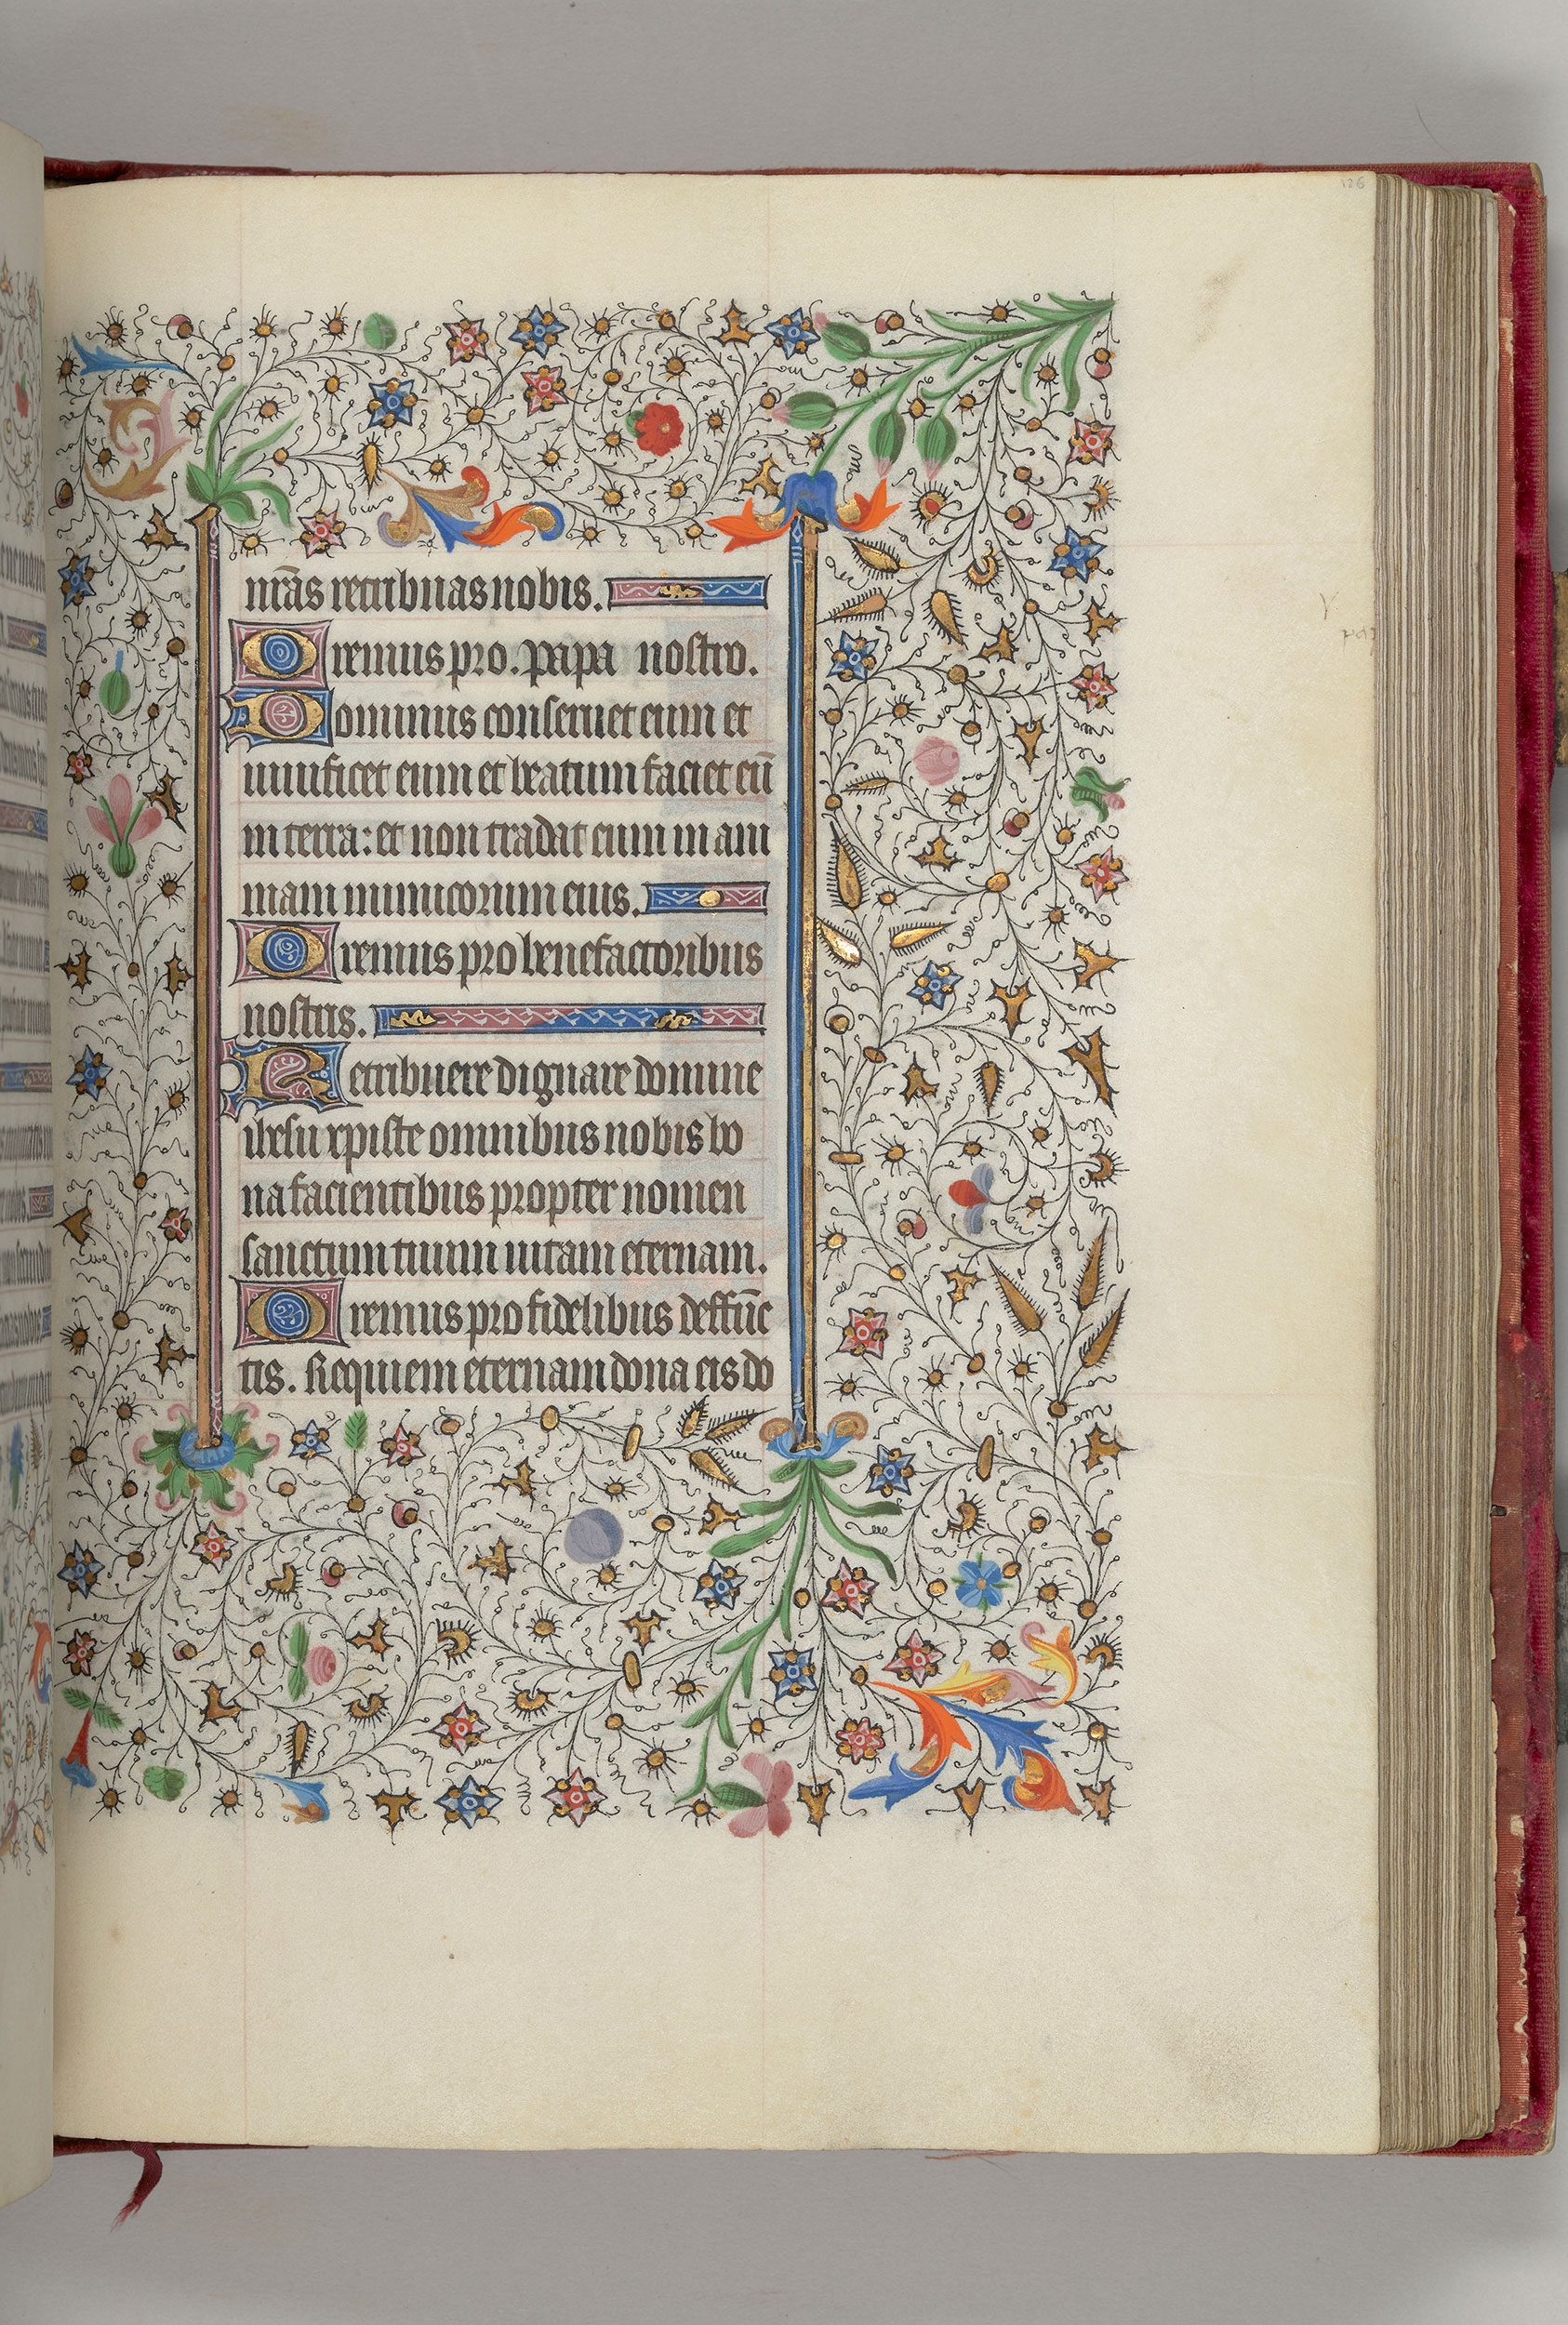 nr̃as retribuas nobis.
Oremus pro. papa nostro.
Dominus conseruet eum et
uiuificet eum et beatum faciet eū
in terra: et non tradat eum in ani
mam inimicorum eius.
Oremus pro benefactoribus
nostris.
Retribuere dignare domine
ihesu xpiste omnibus nobis bo
na facientibus propter nomen
sanctum tuum uitam eternam.
Oremus pro fidelibus deffūc
tis. Requiem eternam dona eis do
126